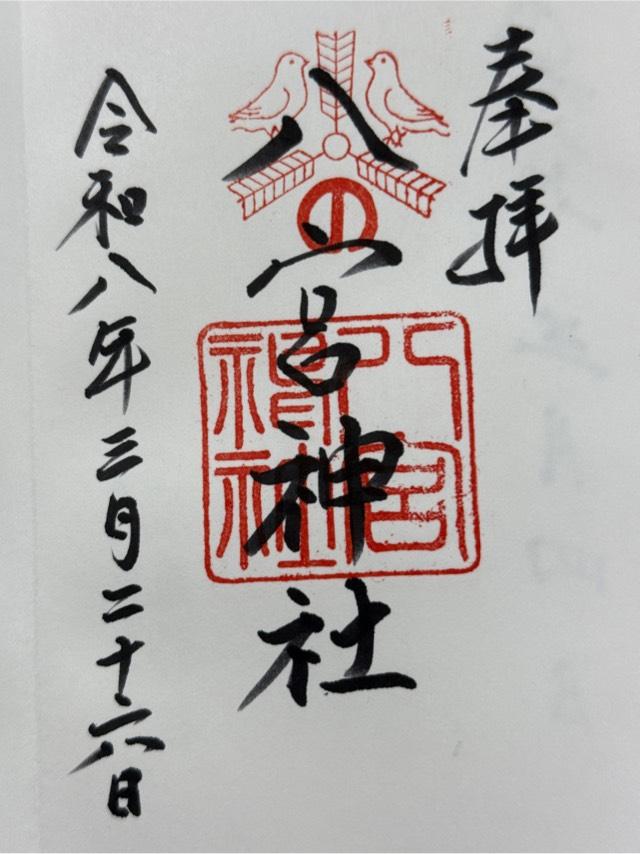 奉拝
八宮神社
八宮
神社
令和八年三月二十六日